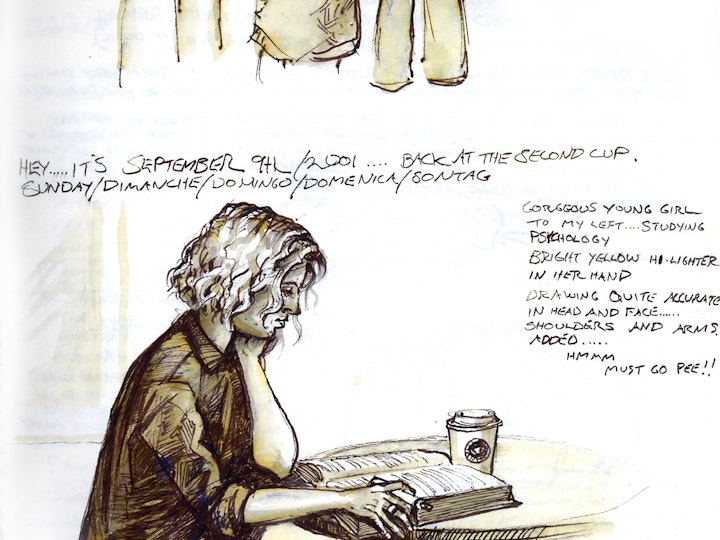 HEY.....IT'S SEPTEMBER 9th/2001.... BACK AT THE SECOND CUP.
SUNDAY/DIMANCHE/DOMINGO/DOMENICA/SONTAG
GORGEOUS YOUNG GIRL
TO MY LEFT....STUDYING
PSYCHOLOGY
BRIGHT YELLOW HI-LIGHTER
IN HER HAND
DRAWING QUITE ACCURATE
IN HEAD AND FACE......
SHOULDERS AND ARMS
ADDED.....
HMMM
MUST GO PEE!!